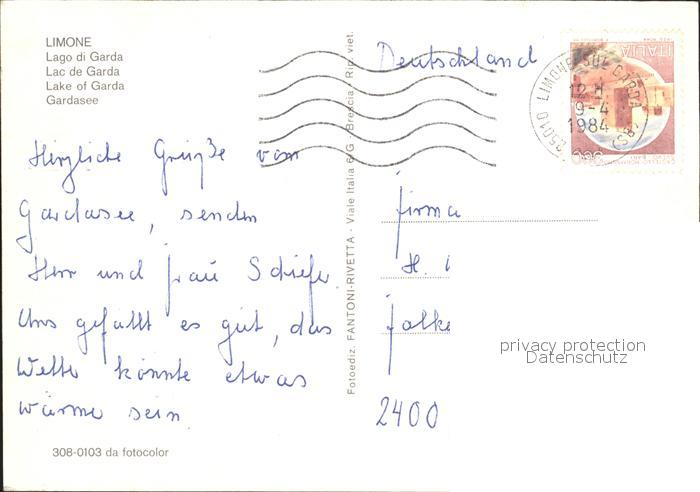 LIMONE
Lago di Garda
Lac de Garda
Lake of Garda
Gardasee
Herzliche Grüße vom
Gardasee, senden
Herr und Frau Schiefer
Uns gefällt es gut, das
Wetter könnte etwas
wärmer sein
308-0103 da fotocolor
Fotoediz. FANTONI-RIVETTA - Viale Italia 6/G - Brescia - Rip. viet.
Deutschland
ITALIA
25010 LIMONE SUL GARDA (BS)
12 H
9-4
1984
Firma
H.
Falke
2400
privacy protection
Datenschutz